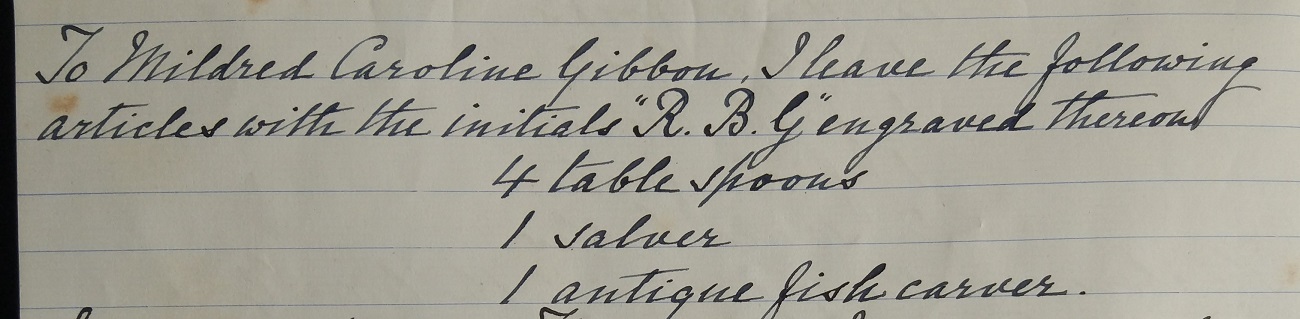 To Mildred Caroline Gibbon, I leave the following
articles with the initials "R. B. G" engraved thereon
4 table spoons
1 salver
1 antique fish carver.